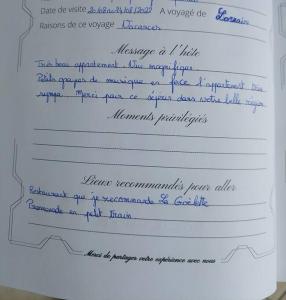 Date de visite
A voyagé de Lorraine
Raisons de ce voyage Vacances
Message à l'hôte
Très beau appartement. Vue magnifique
Petits groupes de musique en face l'appartement très
sympa. Merci pour ce séjour dans votre belle région
Moments privilégiés
Lieux recommandés pour aller
Restaurant que je recommande La Goélette
Promenade en petit train
Merci de partager votre expérience avec nous